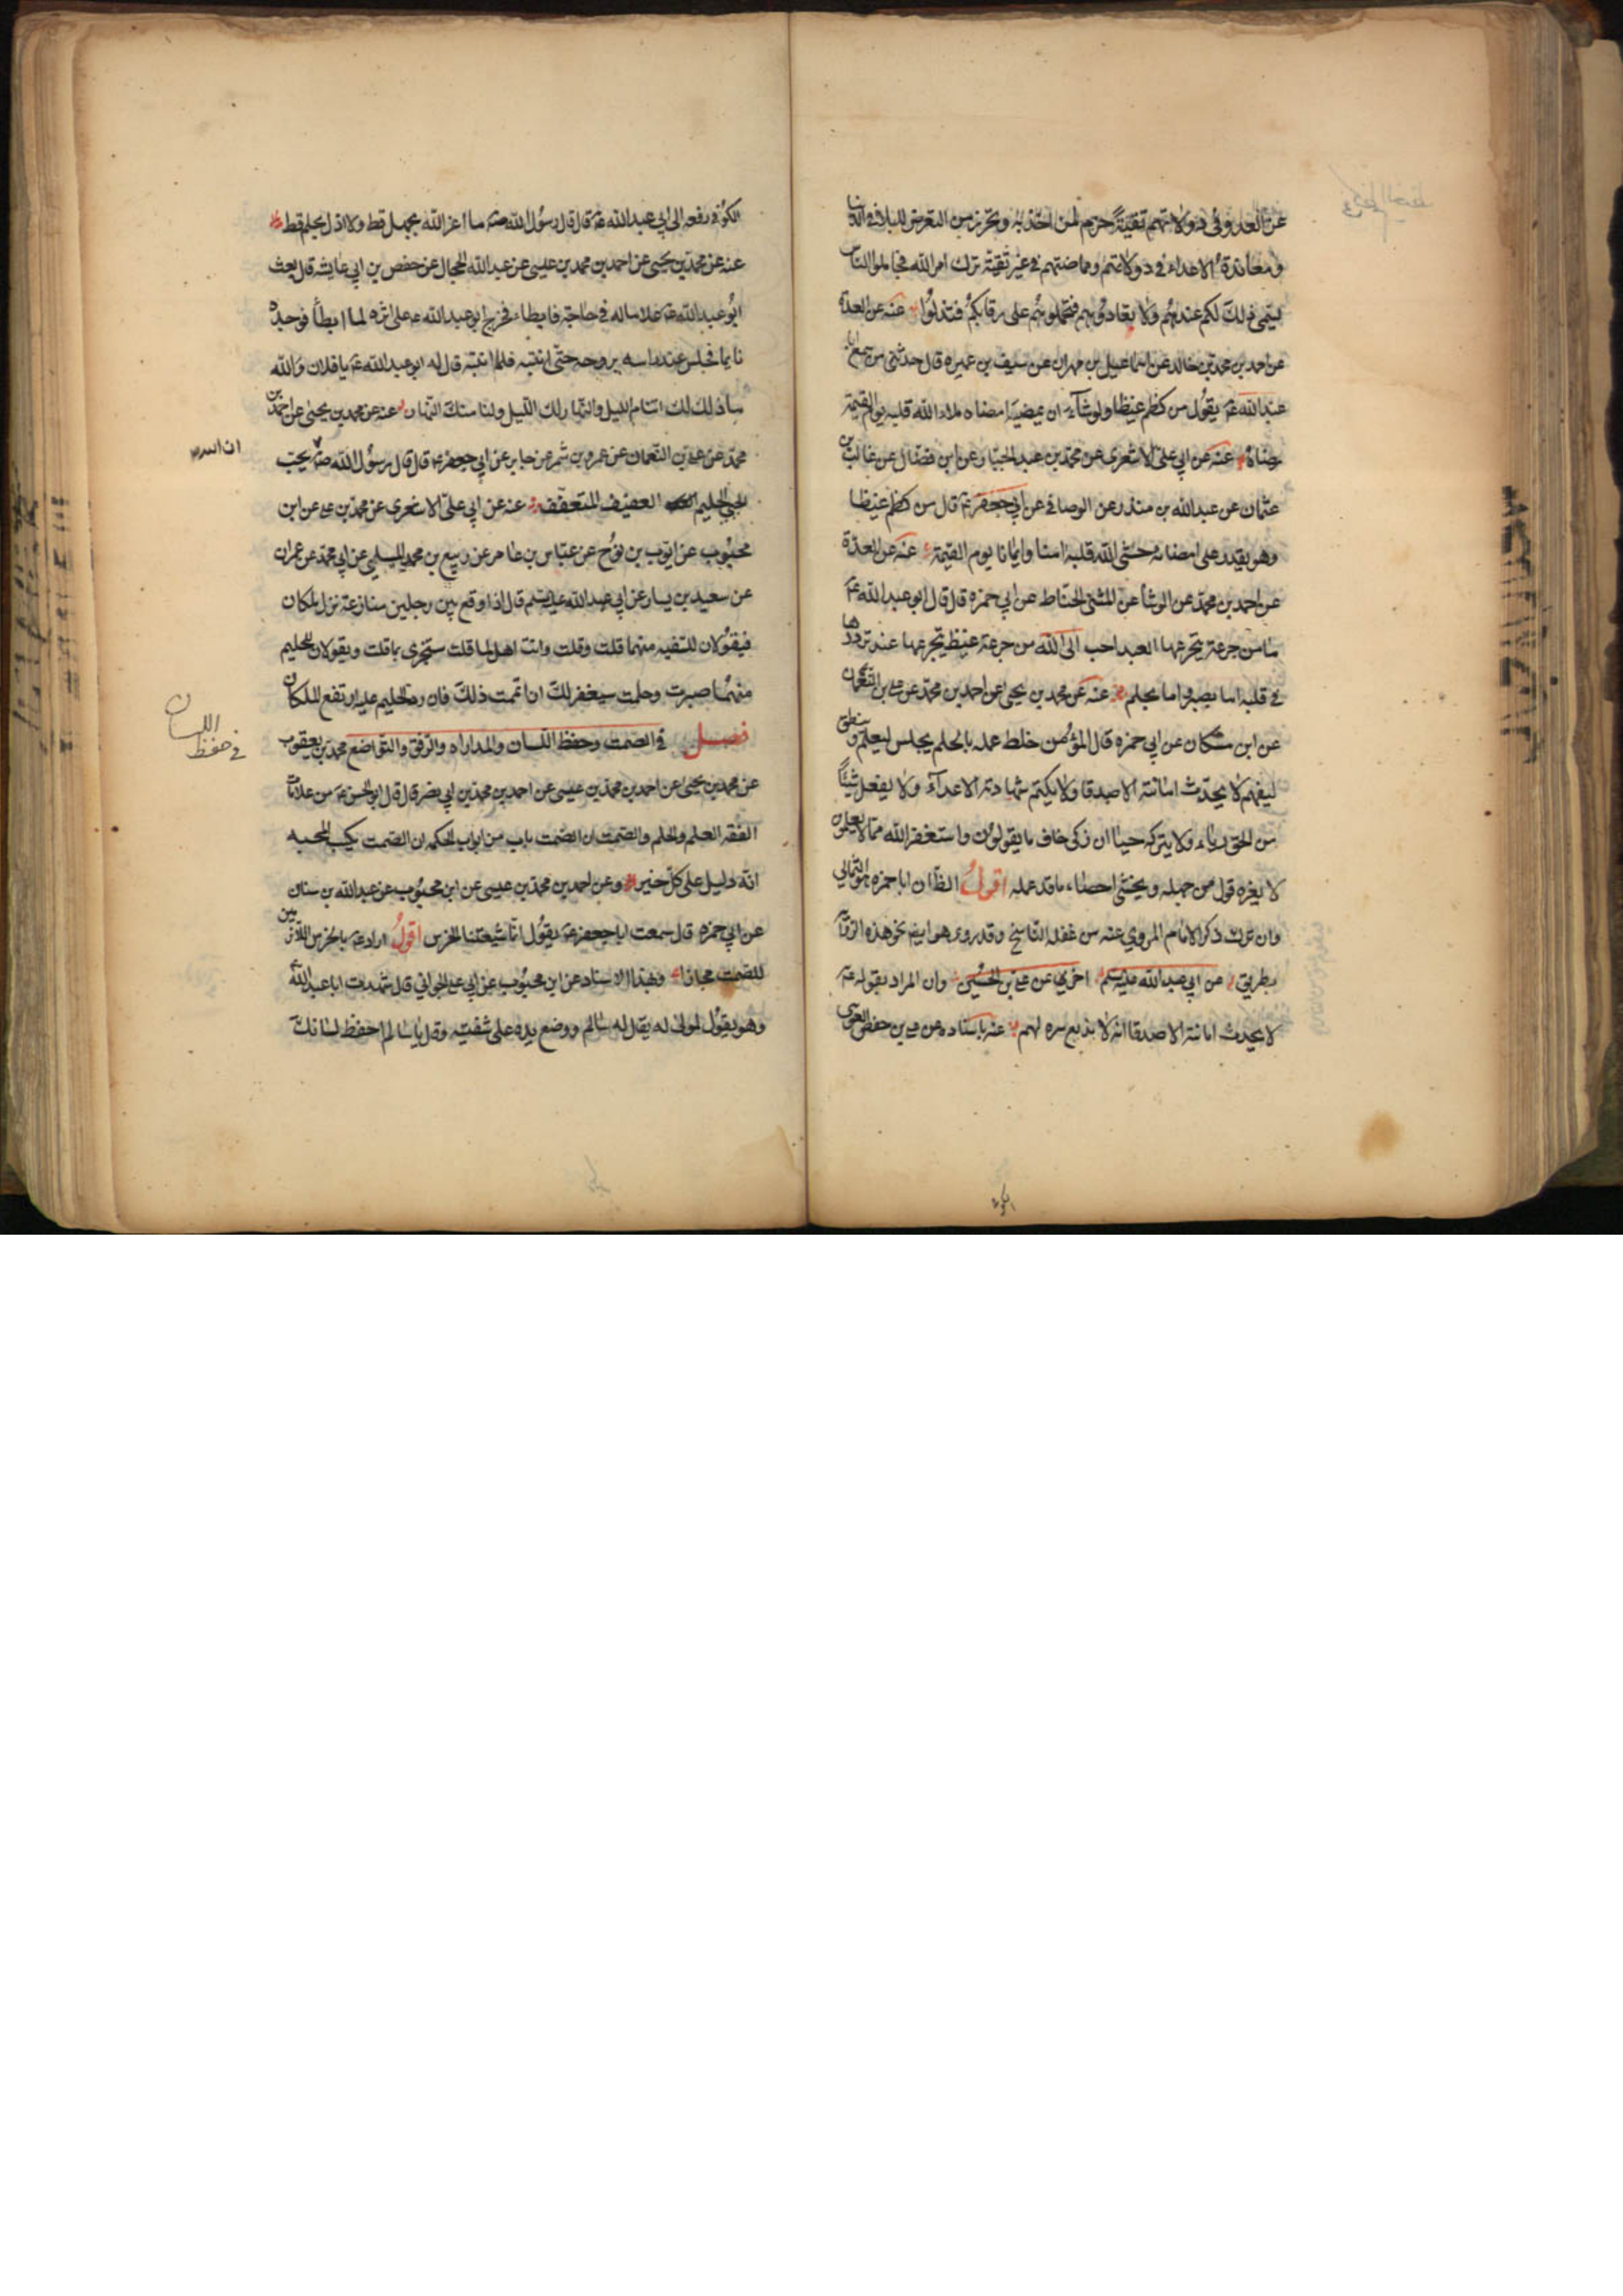 عن العدو في دولاتهم تقية حزم لمن اخذ به وتحرز من التعرض للبلاء في الدنيا
ومعاندة الاعداء في دولاتهم ومماضتهم في غير تقية ترك امر الله فجاملوا الناس
يسمى ذلك لكم عندهم ولا تعادوهم فتحملوهم على رقابكم فتذلوا عنه عن العدة
عن احمد بن محمد بن خالد عن اسماعيل بن مهران عن سيف بن عميره قال حدثنى من سمع ابا
عبد الله ع يقول من كظم غيظا ولو شاء ان يمضيه امضاه ملاء الله قلبه يوم القيمة
رضاه عنه عن ابي علي الاشعرى عن محمد بن عبد الجبار عن ابن فضال عن غالب بن
عثمان عن عبد الله بن منذر عن الوصافي عن ابي جعفر ع قال من كظم غيظا
وهو يقدر على امضائه حشى الله قلبه امنا وايمانا يوم القيمة عنه عن العدة
عن احمد بن محمد عن الوشا عن المثنى الحناط عن ابي حمزه قال قال ابو عبد الله ع
ما من جرعة يتجرعها العبد احب الى الله من جرعة غيظ يتجرعها عند ترددها
في قلبه اما بصبر واما بحلم عنه عن محمد بن يحيى عن احمد بن محمد عن علي بن النعمان
عن ابن مسكان عن ابي حمزه قال المؤمن خلط عمله بالحلم يجلس ليعلم وينطق
ليفهم لا يحدث امانته الاصدقا ولا يكتم شهادته الاعداء ولا يفعل شيئا
من الحق رياء ولا يتركه حياا ان زكى خاف ما يقولون واستغفر الله مما لا يعلمون
لا يغره قول من جهله ويخشى احصاء ما قد عمله اقول الظا ان ابا حمزه هو الثمالي
وان ترك ذكر الامام المروي عنه من غفلة الناسخ وقد روى هو ايضا نحو هذه الرواية
بطريق عن ابي عبد الله عليه السلم اخرى عن علي بن الحسين وان المراد بقوله ع
لا يحدث امانته الاصدقا انه لا يذيع سره لهم عنه باسناده عن علي بن حفص العوسى
الكوفي
الكوفي رفعه الى ابي عبد الله ع قال قال رسول الله ص ما اعز الله بجهل قط ولا اذل بحلم قط
عنه عن محمد بن يحيى عن احمد بن محمد بن عيسى عن عبد الله الحجال عن حفص بن ابي عايشه قال بعث
ابو عبد الله ع غلاما له في حاجة فابطاء فخرج ابو عبد الله ع على اثره لما ابطأ فوجده
نايما فجلس عند راسه يروحه حتى انتبه فلما انتبه قال له ابو عبد الله ع يا فلان والله
ما ذلك لك اتنام الليل والنهار لك الليل ولنا منك النهار عنه عن محمد بن يحيى عن احمد بن
محمد عن علي بن النعمان عن عمرو بن شمر عن جابر عن ابي جعفر ع قال قال رسول الله ص يحب
ان الله
الحيي الحليم العفيف المتعفف عنه عن ابي علي الاشعرى عن محمد بن علي عن ابن
محبوب عن ايوب بن نوح عن عباس بن عامر عن ربيع بن محمد المسلمي عن ابي محمد عن عمران
عن سعيد بن يسار عن ابي عبد الله عليه السلم قال اذا وقع بين رجلين منازعة نزل ملكان
فيقولان للسفيه منهما قلت وقلت وانت اهل لما قلت ستجزى بما قلت ويقولان للحليم
منهما صبرت وحلمت سيغفر لك ان اتممت ذلك فان رد الحليم عليه ارتفع الملكان
فصل في الصمت وحفظ اللسان والمداراه والرفق والتواضع محمد بن يعقوب
في حفظ اللسان
عن محمد بن يحيى عن احمد بن محمد بن عيسى عن احمد بن محمد بن ابي نصر قال قال ابو الحسن ع من علامات
الفقه العلم والحلم والصمت ان الصمت باب من ابواب الحكمه ان الصمت يكسب المحبه
انه دليل على كل خير وعن احمد بن محمد بن عيسى عن ابن محبوب عن عبد الله بن سنان
عن ابي حمزه قال سمعت ابا جعفر ع يقول انما شيعتنا الخرس اقول اراد ع بالخرس اللازمين
للصمت مجازا وبهذا الاسناد عن ابن محبوب عن ابي علي الجواني قال شهدت ابا عبد الله ع
وهو يقول لمولى له يقال له سالم ووضع يده على شفتيه وقال يا سالم احفظ لسانك